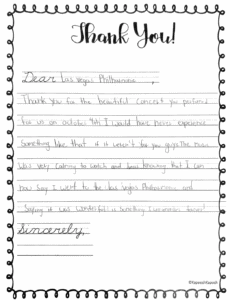 Thank You!
Dear Las Vegas Philharmonic,
Thank you for the beautiful concert you performed
for us on october 4th I would have never experience
Something like that if it weren't for you guys. The music
was very calming to watch and knowing that I can
now say I went to the Las Vegas Philharmonic and
Saying it was wonderful is something I will forever
Sincerely,